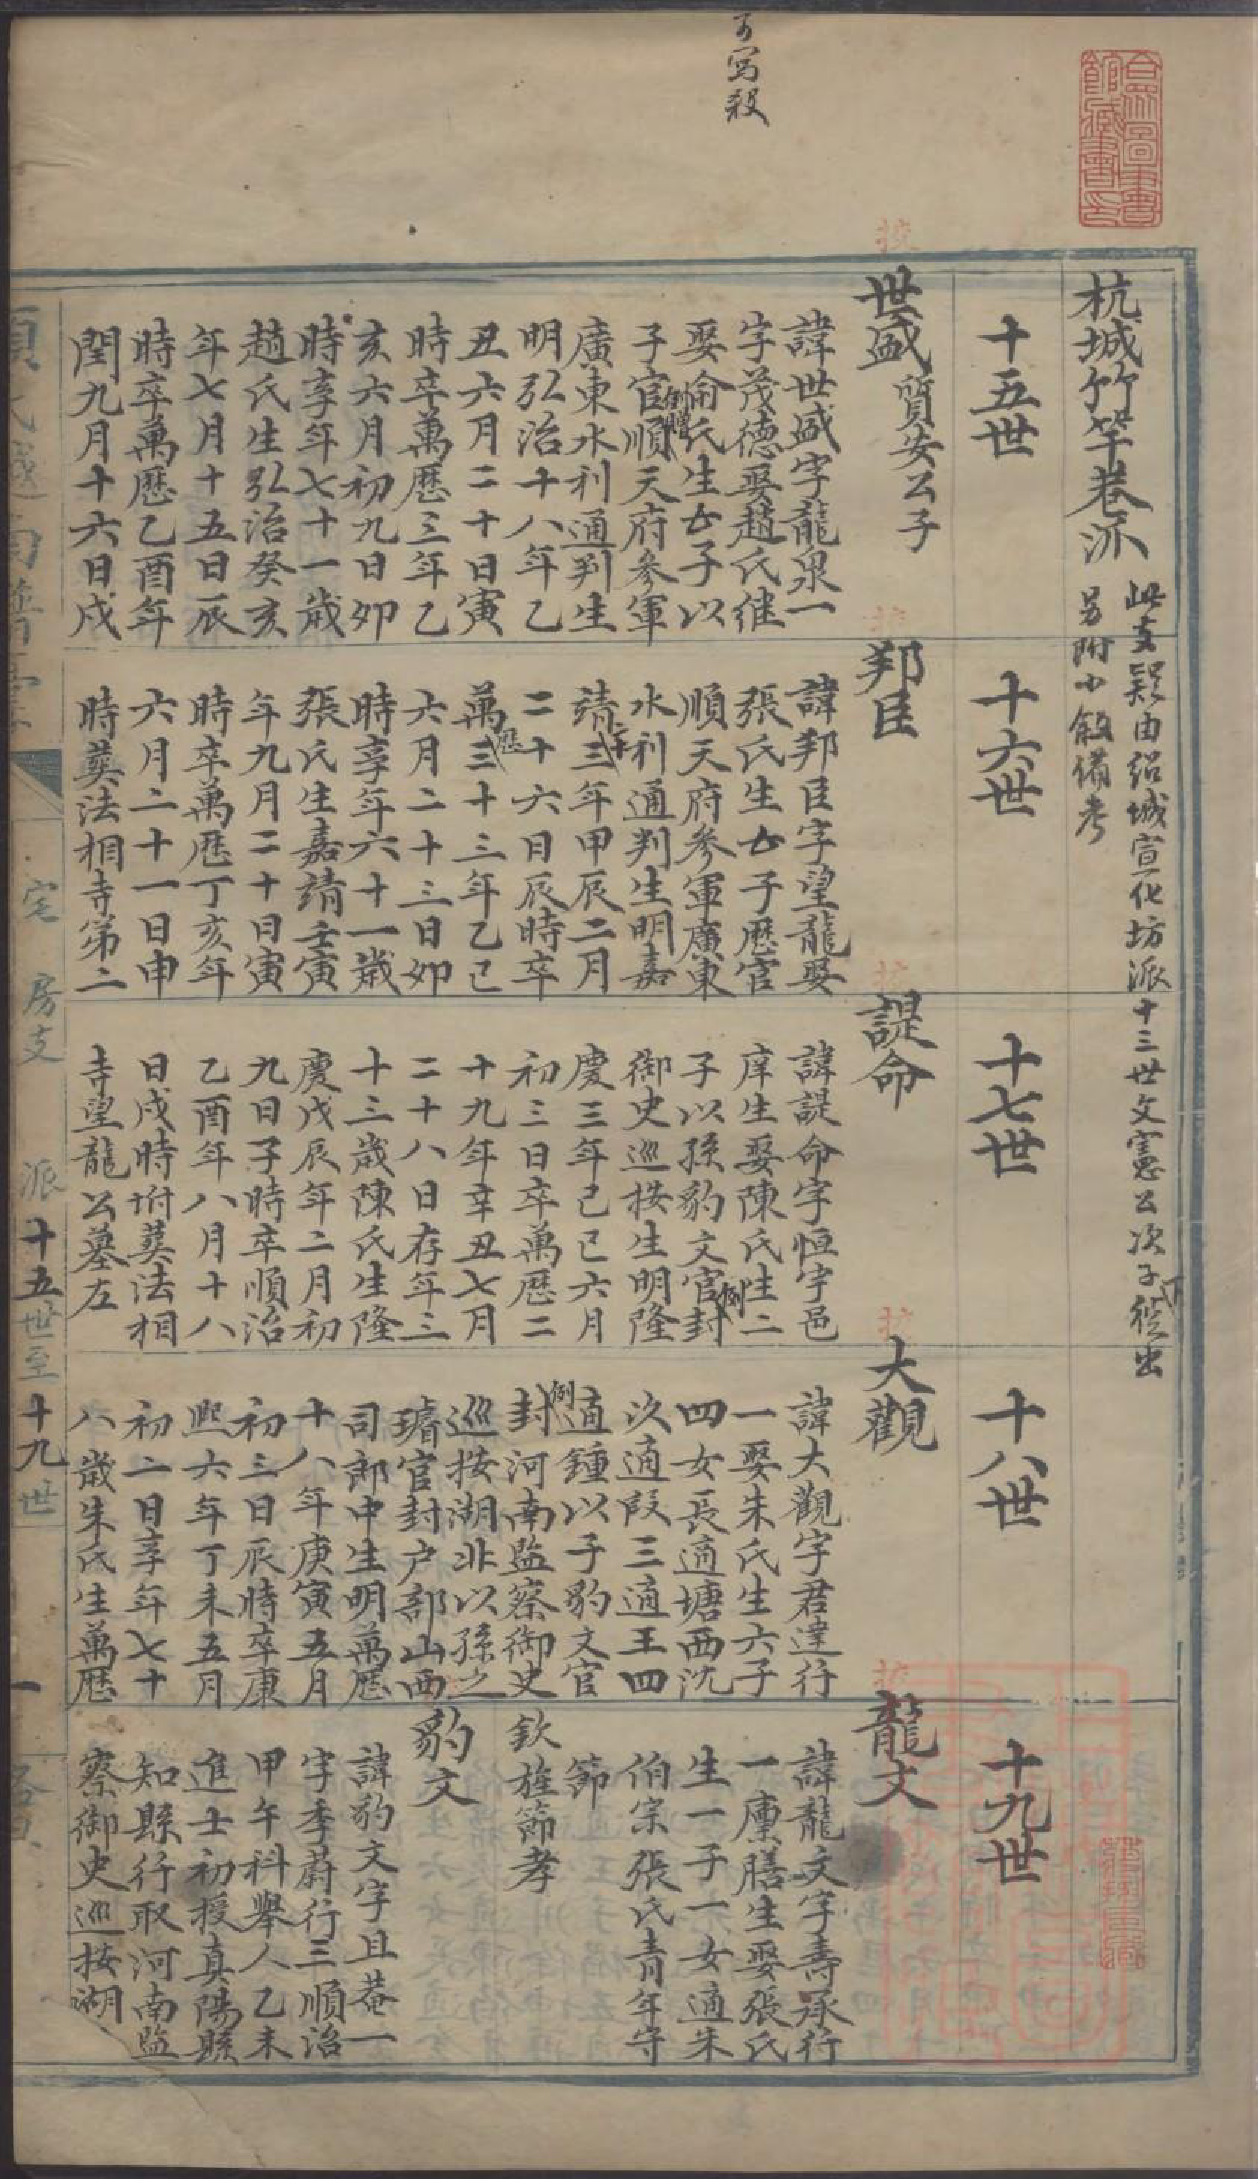 可寫殺
杭城竹竿巷派
此支疑由紹城宣化坊派十三世文憲公次子後下出
另附小敘備考
十五世
世盛 質安公子
諱世盛字龍泉一
字茂德娶趙氏繼
娶俞氏生七子以
子官例贈順天府參軍
廣東水利通判生
明弘治十八年乙
丑六月二十日寅
時卒萬歷三年乙
亥六月初九日夘
時享年七十一歲
趙氏生弘治癸亥
年七月十五日辰
時卒萬歷乙酉年
閏九月十六日戌
十六世
邦臣
諱邦臣字望龍娶
張氏生七子歷官
順天府參軍廣東
水利通判生明嘉
靖二十三年甲辰二月
二十六日辰時卒
萬歷三十三年乙巳
六月二十三日夘
時享年六十一歲
張氏生嘉靖壬寅
年九月二十日寅
時卒萬歷丁亥年
六月二十一日申
時葬法相寺第二
十七世
諟命
諱諟命字恒宇邑
庠生娶陳氏生二
子以孫豹文官例封
御史巡按生明隆
慶三年己巳六月
初三日卒萬歷二
十九年辛丑七月
二十八日存年三
十三歲陳氏生隆
慶戊辰年二月初
九日子時卒順治
乙酉年八月十八
日戌時坿葬法相
寺望龍公墓左
十八世
大觀
諱大觀字君達行
一娶朱氏生六子
四女長適塘西沈
次適段三適王四
適鍾以子豹文官
例封河南監察御史
巡按湖北以孫之
璿官封户部山西
司郎中生明萬歷
十八年庚寅五月
初三日辰時卒康
熙六年丁未五月
初二日享年七十
八歲朱氏生萬歷
十九世
龍文
諱龍文字壽承行
一廩膳生娶張氏
生一子一女適朱
伯宗張氏青年守
節
欽旌節孝
豹文
諱豹文字且菴一
字季蔚行三順治
甲午科舉人乙未
進士初授真陽縣
知縣行取河南監
察御史巡按湖
宅 房支 派十五世至十九世 一